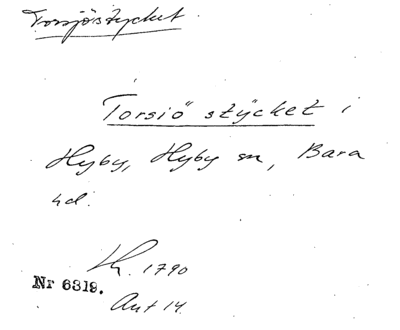 Torsjöstycket
Torsiö stÿcket i
Hyby, Hyby sn, Bara
hd.
Lh. 1790
Nr 6319.
Akt 14.